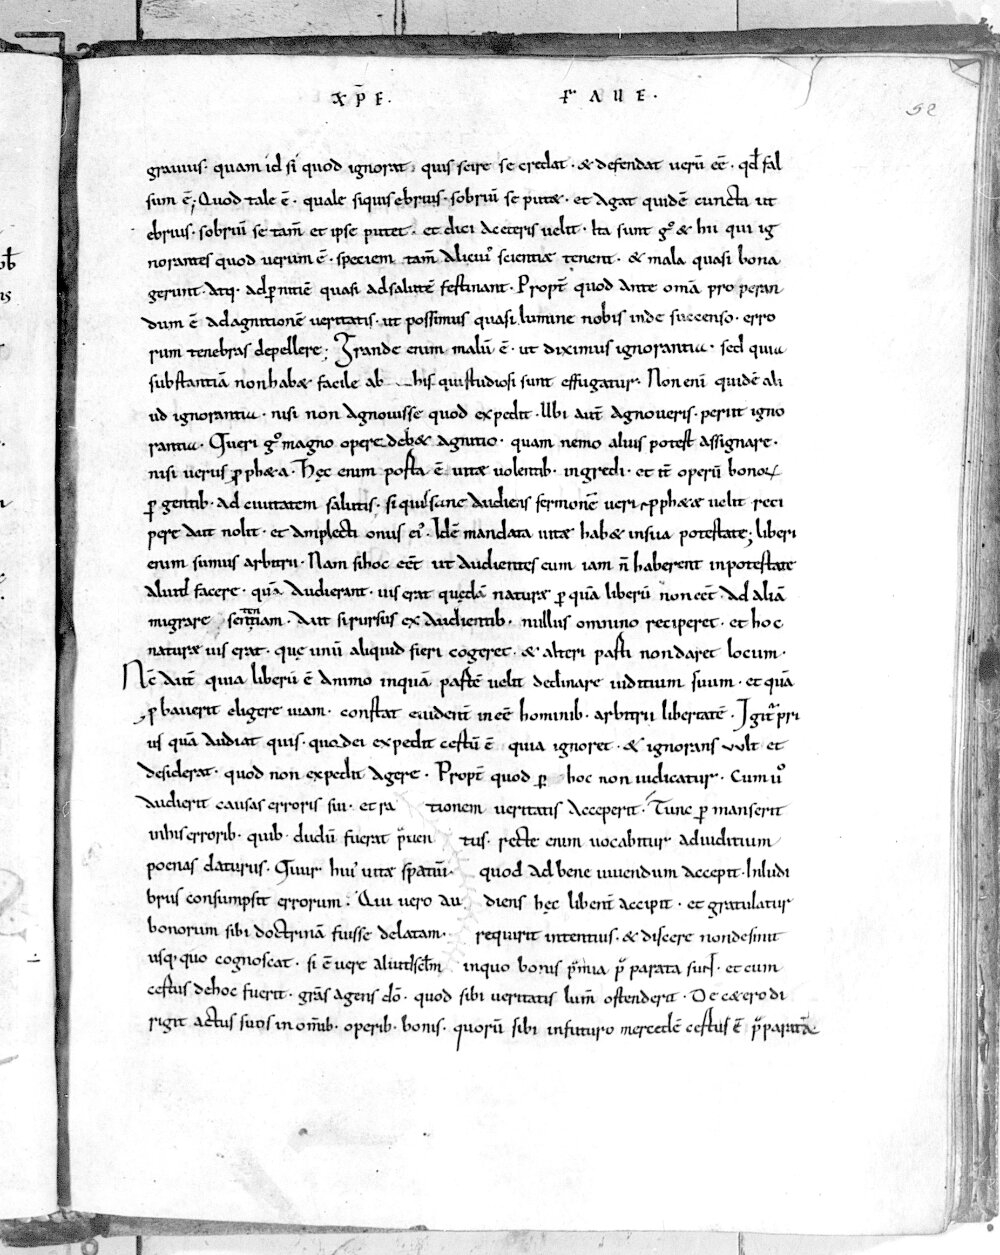 XP̄E. FAUE.
52
grauius. quam id si quod ignorat. quis scire se credat. & defendat uerū eē. qđ fal
sum ē; Quod tale ē. quale siquis ebrius. sobriū se putæ. et agat quidē cuncta ut
ebrius. sobriū se tam̄ et ipse putet. et dici aceteris uelit. Ita sunt gͦ & hii qui ig
norantes quod uerum ē. speciem tam̄ alicuiꝰ scientiæ tenent. & mala quasi bona
gerunt. atq. adꝑnitiē quasi adsalutē festinant. Propt̄ quod ante om̄a properan
dum ē adagnitionē ueritatis. ut possimus quasi lumine nobis inde succenso. erro
rum tenebras depellere; Grande enim malū ē. ut diximus ignorantia. sed quia
substantiā nonhabæ facile ab his quistudiosi sunt effugatur. Non eni quidē ali
ud ignorantia. nisi non agnouisse quod expedit. Ubi aut̄ agnoueris. perit igno
rantia. Queri gͦ magno opere debæ agnitio. quam nemo alius potest assignare.
nisi uerus ꝓphæa. Hęc enim posta ē uitæ uolentib. ingredi. et it̄ operū bonoꝝ
ꝑgentib. ad ciuitatem salutis. siquis sane audiens sermonē ueri ꝓphææ uelit reci
pere aut nolit. et amplecti onus eiꝰ. Idē mandata uitæ habæ insua potestate; liberi
enim sumus arbitrii. Nam sihoc eēt ut audientes eum iam n̄ haberent inpotestate
aliud facere. quā audierant. uis erat quędā naturæ ꝑ quā liberū non eēt. ad aliā
migrare sententiam. Aut si rursus ex audientib. nullus omnino reciperet. et hoc
naturæ uis erat. quę unū aliquid fieri cogeret. & alteri parti nondaret locum.
Nc̄ aut̄ quia liberū ē animo inquā partē uelit declinare iuditium suum. et quā
ꝓbauerit eligere uiam. constat euident̄ ineē hominib. arbitrii libertatē. Igit̄ pri
us quā audiat quis. quod ei expedit certū ē quia ignoret. & ignorans uult et
desiderat. quod non expedit agere. Propt̄ quod ꝑ hoc non iudicatur. Cum uͦ
audierit causas erroris sui. et ra tionem ueritatis acceperit. Tunc ꝑmanserit
inhis errorib. quib. dudū fuerat p̄uen tus. recte enim uocabitur adiuditium
poenas daturus. Quur huiꝰ uitæ spatiū. quod ad bene uiuendum accepit. Inludi
brus consumpsit errorum. Qui uero au diens hęc libent̄ accipit. et gratulatur
bonorum sibi doctrinā fuisse delatam. requirit intentius. & discere nondesinit
usq. quo cognoscat. si ē uere aliud sc̄lm inquo bonis p̄mia p̄parata sunt. et cum
certus dehoc fuerit. gr̄as agens dō. quod sibi ueritatis lum̄ ostenderit. De cæero di
rigit actus suos in om̄ib. operib. bonis. quorū sibi infuturo mercedē certus ē p̄paratā